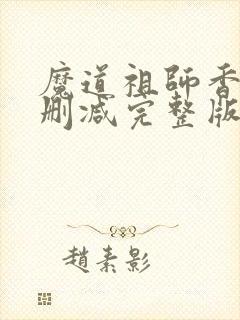 魔道祖師香
刪減完整版
趙素影